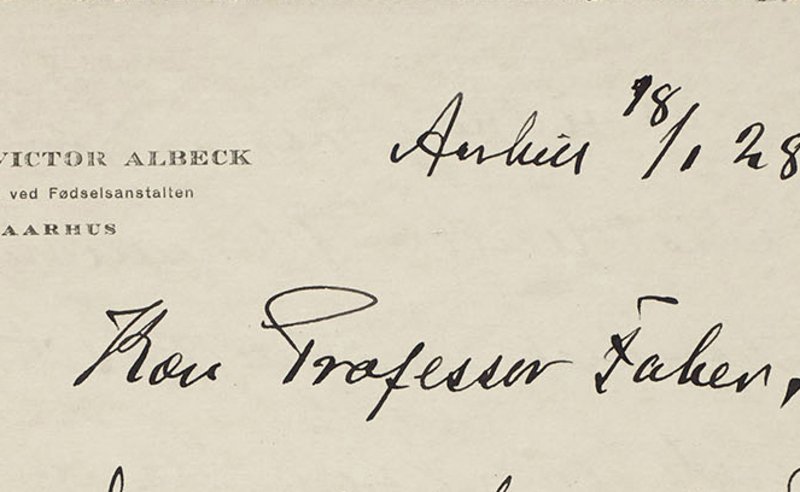 VICTOR ALBECK
Aarhus 18/1 28
ved Fødselsanstalten
AARHUS
Kære Professor Faber,